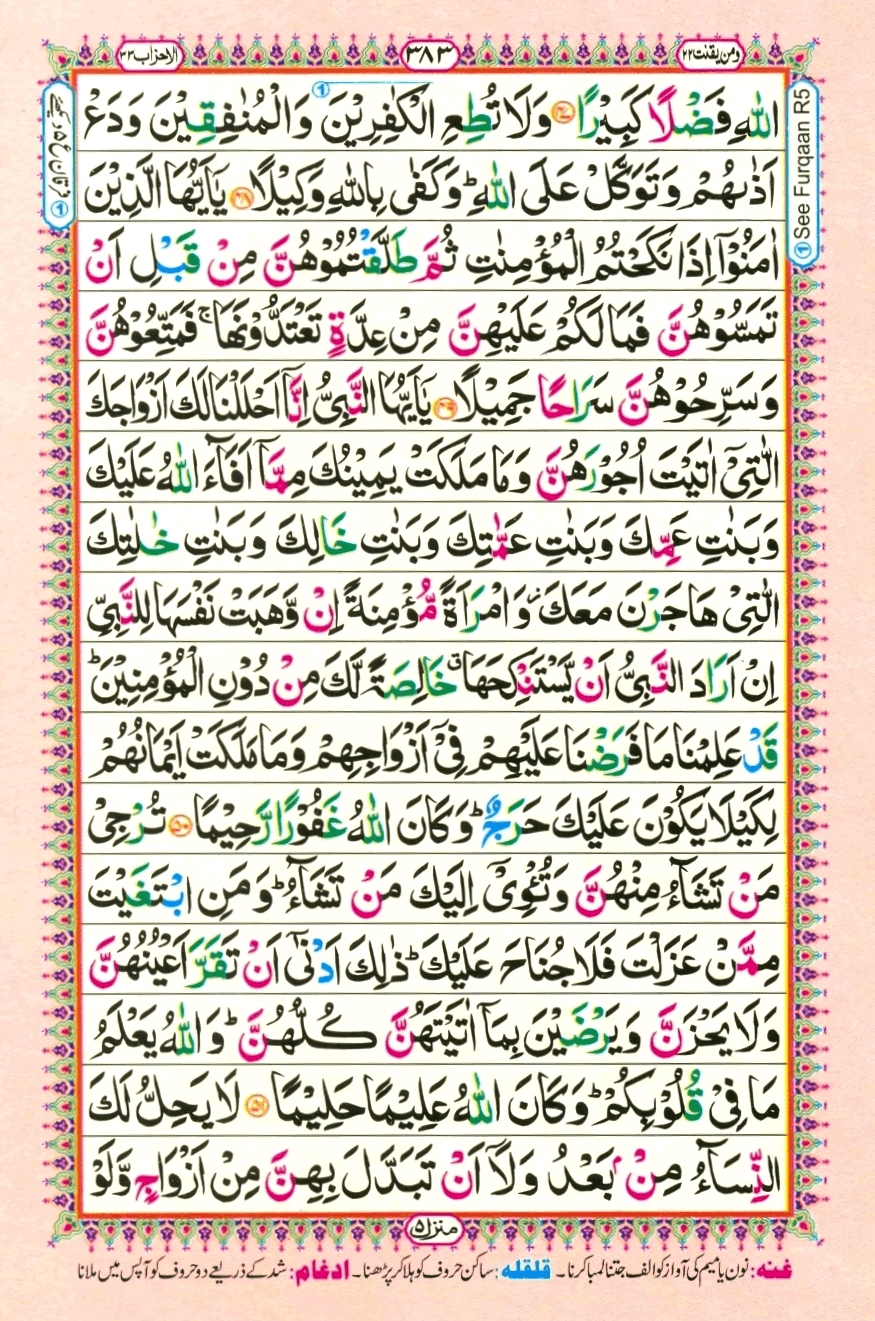 ومن یقنت ۲۲
۳۸۳
الاحزاب ۳۳
اللّٰهِ فَضْلًا كَبِیْرًا ۴۷ وَلَا تُطِعِ الْكٰفِرِیْنَ وَالْمُنٰفِقِیْنَ وَدَعْ
اَذٰىهُمْ وَتَوَكَّلْ عَلَى اللّٰهِ ؕ وَكَفٰى بِاللّٰهِ وَكِیْلًا ۴۸ یٰۤاَیُّهَا الَّذِیْنَ
اٰمَنُوْۤا اِذَا نَكَحْتُمُ الْمُؤْمِنٰتِ ثُمَّ طَلَّقْتُمُوْهُنَّ مِنْ قَبْلِ اَنْ
تَمَسُّوْهُنَّ فَمَا لَكُمْ عَلَیْهِنَّ مِنْ عِدَّةٍ تَعْتَدُّوْنَهَا ۚ فَمَتِّعُوْهُنَّ
وَسَرِّحُوْهُنَّ سَرَاحًا جَمِیْلًا ۴۹ یٰۤاَیُّهَا النَّبِیُّ اِنَّاۤ اَحْلَلْنَا لَكَ اَزْوَاجَكَ
الّٰتِیْۤ اٰتَیْتَ اُجُوْرَهُنَّ وَمَا مَلَكَتْ یَمِیْنُكَ مِمَّاۤ اَفَآءَ اللّٰهُ عَلَیْكَ
وَبَنٰتِ عَمِّكَ وَبَنٰتِ عَمّٰتِكَ وَبَنٰتِ خَالِكَ وَبَنٰتِ خٰلٰتِكَ
الّٰتِیْ هَاجَرْنَ مَعَكَ ؗ وَامْرَاَةً مُّؤْمِنَةً اِنْ وَّهَبَتْ نَفْسَهَا لِلنَّبِیِّ
اِنْ اَرَادَ النَّبِیُّ اَنْ یَّسْتَنْكِحَهَا ۗ خَالِصَةً لَّكَ مِنْ دُوْنِ الْمُؤْمِنِیْنَ ؕ
قَدْ عَلِمْنَا مَا فَرَضْنَا عَلَیْهِمْ فِیْۤ اَزْوَاجِهِمْ وَمَا مَلَكَتْ اَیْمَانُهُمْ
لِكَیْلَا یَكُوْنَ عَلَیْكَ حَرَجٌ ؕ وَكَانَ اللّٰهُ غَفُوْرًا رَّحِیْمًا ۵۰ تُرْجِیْ
مَنْ تَشَآءُ مِنْهُنَّ وَتُـْٔوِیْۤ اِلَیْكَ مَنْ تَشَآءُ ؕ وَمَنِ ابْتَغَیْتَ
مِمَّنْ عَزَلْتَ فَلَا جُنَاحَ عَلَیْكَ ؕ ذٰلِكَ اَدْنٰۤى اَنْ تَقَرَّ اَعْیُنُهُنَّ
وَلَا یَحْزَنَّ وَیَرْضَیْنَ بِمَاۤ اٰتَیْتَهُنَّ كُلُّهُنَّ ؕ وَاللّٰهُ یَعْلَمُ
مَا فِیْ قُلُوْبِكُمْ ؕ وَكَانَ اللّٰهُ عَلِیْمًا حَلِیْمًا ۵۱ لَا یَحِلُّ لَكَ
النِّسَآءُ مِنْۢ بَعْدُ وَلَاۤ اَنْ تَبَدَّلَ بِهِنَّ مِنْ اَزْوَاجٍ وَّلَوْ
① See Furqaan R5
منزل ۵
غنه: نون یا میم کی آواز کو الف جتنا لمبا کرنا۔ قلقله: ساکن حروف کو ہلا کر پڑھنا۔ ادغام: شد کے ذریعے دو حروف کو آپس میں ملانا